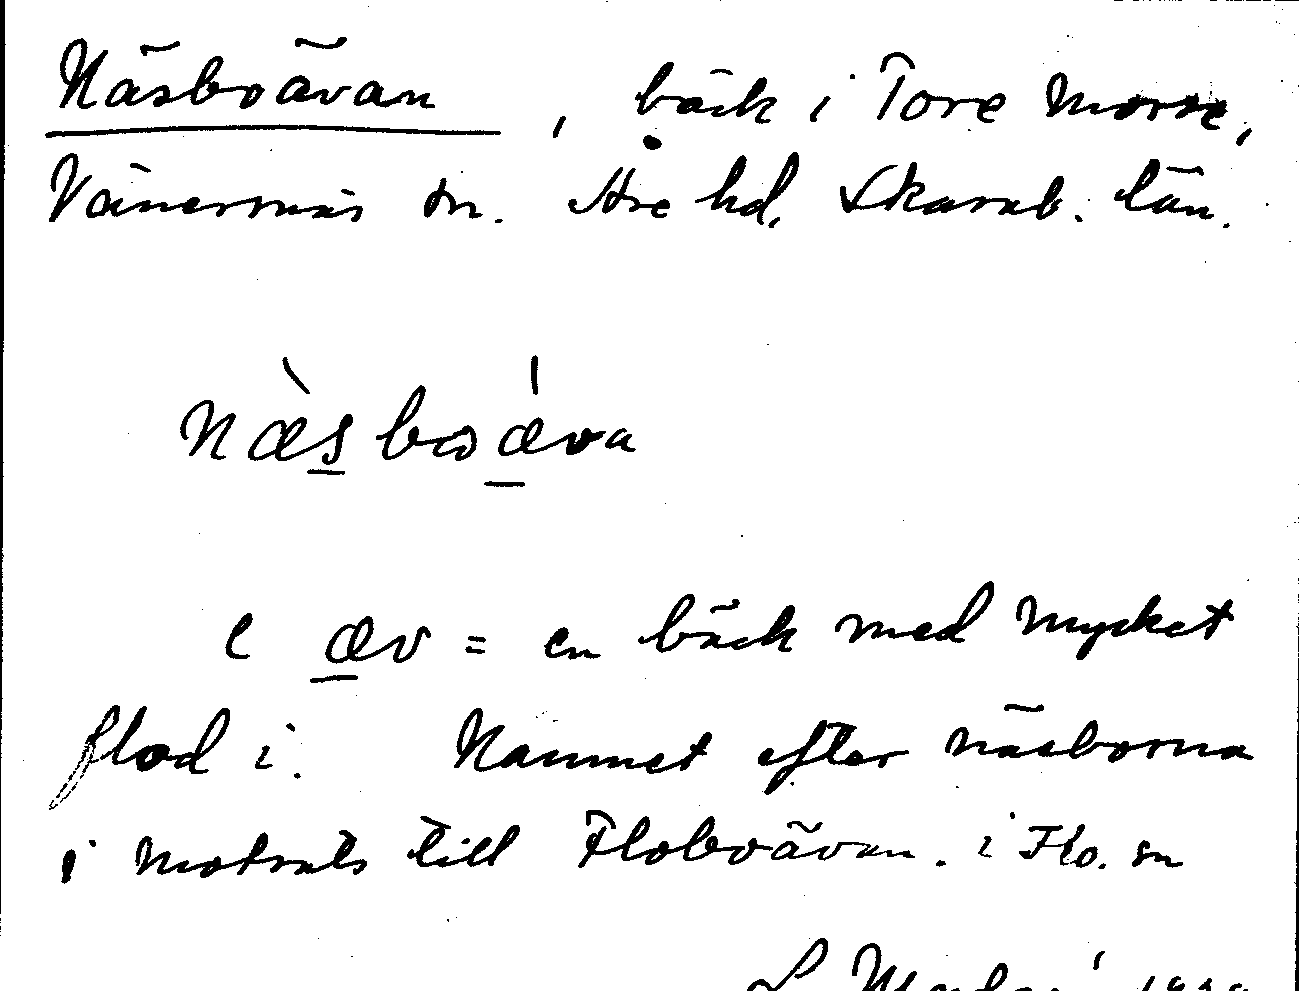 Näsboävan, bäck i Tore Mosse,
Vänersnäs sn. Åse hd, Skarab. län.
Næsboæva
e æv = en bäck med mycket
flod i. Namnet efter näsborna
i motsats till Floboävan. i Flo. sn